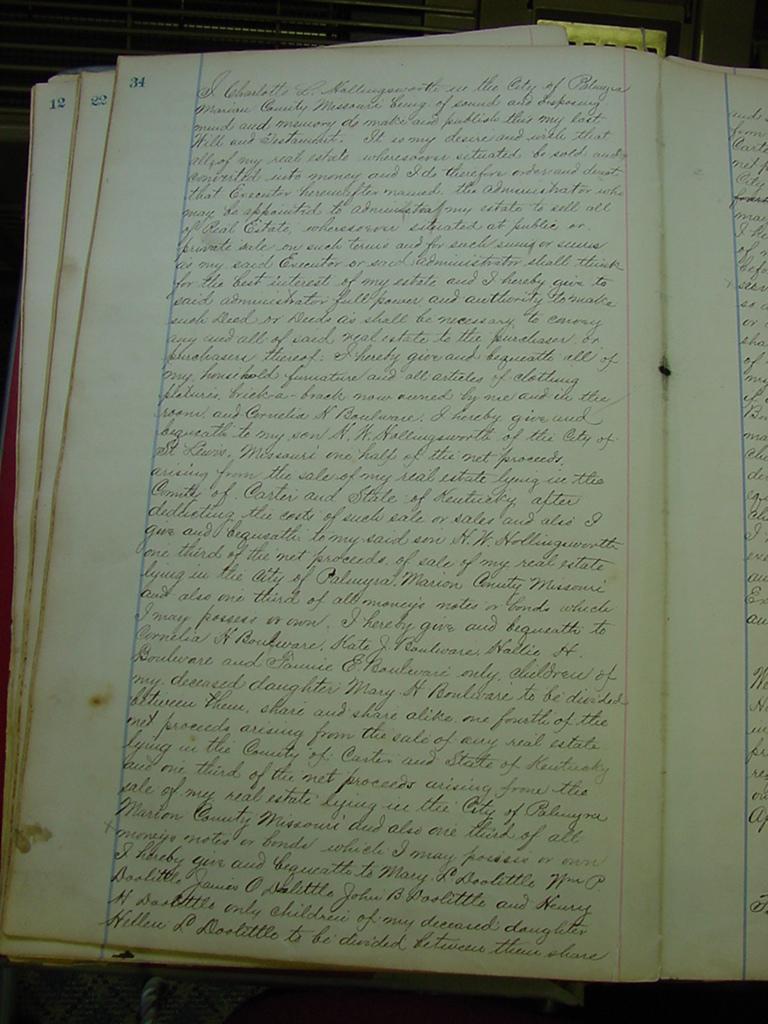 12
22
34
I Charlotte L. Hollingsworth in the City of Palmyra
Marion County Missouri being of sound and disposing
mind and memory do make and publish this my last
Will and Testament. It is my desire and wish that
all of my real estate wheresoever situated be sold and
converted into money and I do therefore order and direct
that Executor hereinafter named the administrator who
may be appointed to administer my estate to sell all
of Real Estate, wheresoever situated at public or
private sale on such terms and for such sum or sums
as my said Executor or said administrator shall think
for the best interest of my estate and I hereby give to
said administrator full power and authority to make
such Deed or Deeds as shall be necessary to convey
any and all of said real estate to the purchaser or
purchasers thereof. I hereby give and bequeath all of
my household furnature and all articles of clothing
pictures, brick-a-brack now owned by me and in the
room, and Cornelia H Boulware. I hereby give and
bequeath to my son H. W. Hollingsworth of the City of
St Lewis, Missouri one half of the net proceeds,
arising from the sale of my real estate lying in the
County of Carter and State of Kentucky after
deducting the costs of such sale or sales and also I
give and bequeath to my said son H. W. Hollingsworth
one third of the net proceeds of sale of my real estate
lying in the City of Palmyra, Marion County Missouri
and also one third of all money's notes or bonds which
I may possess or own. I hereby give and bequeath to
Cornelia H Boulware, Kate J. Boulware, Hallie H.
Boulware and Fannie E. Boulware only children of
my deceased daughter Mary H Boulware to be divided
between them, share and share alike one fourth of the
net proceeds arising from the sale of any real estate
lying in the County of Carter and State of Kentucky
and one third of the net proceeds arising from the
sale of my real estate lying in the City of Palmyra
Marion County Missouri and also one third of all
money's notes or bonds which I may possess or own
I hereby give and bequeath to Mary L Doolittle Wm P
Doolittle James O Dolittle John B Doolittle and Henry
H Doolittle only children of my deceased daughter
Hellen L Doolittle to be divided between them share